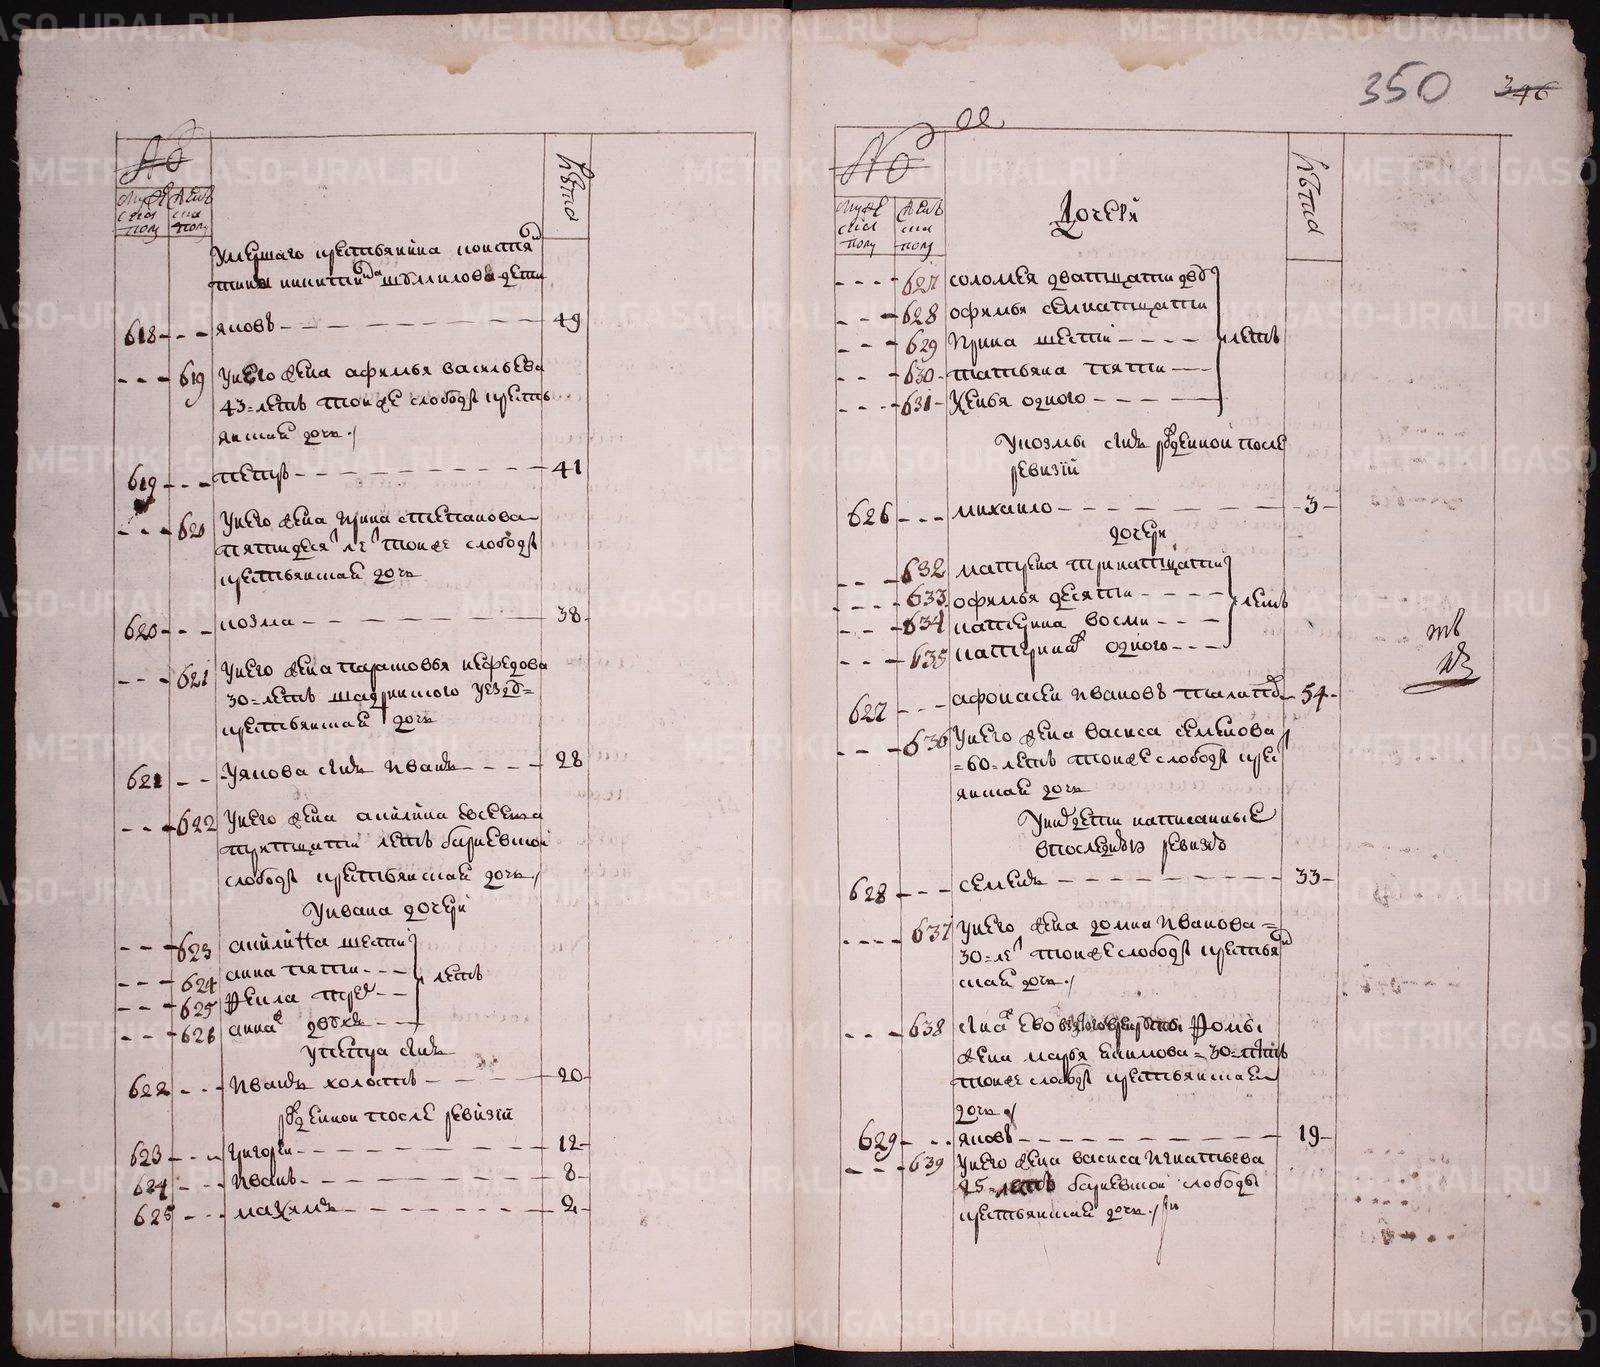 №
мужеска полу
женска полу
лѣта
Умершаго крестьянина констян
тина никитина шумилова дети
618 --- яковъ --- 49
--- 619 У него жена афимья васильева
43 = летъ тоиже слободы кресть
янская дочь /
619 --- петръ --- 41
--- 620 У него жена ирина степанова
пятидеся ле тоиже слободы
крестьянская дочь
620 --- козма --- 38
--- 621 У него жена парасковья нефедова
30 = летъ шадринского уезду =
крестьянская дочь
621 --- У якова сынъ иванъ --- 28
--- 622 У него жена
тритцати летъ барневской
слободы крестьянская дочь /
У ивана дочери
--- 623 шести
--- 624 анна пяти --- летъ
--- 625 трех ---
--- 626 анна ж двухъ ---
У петра сынъ
622 --- иванъ холостъ --- 20
рожденнои после ревизiи
623 --- григореи --- 12
624 --- иванъ --- 8
625 --- максимъ --- 2
350 346
№
мужеска полу
женска полу
лѣта
Дочери
--- 627 соломея дватцати двух
--- 628 офимья семнатцати
--- 629 ирина шести --- летъ
--- 630 татьяна пяти ---
--- 631 одного ---
У козмы сынъ рожденнои после
ревизiи
626 --- михаило --- 3
дочери
--- 632 матрена тринатцати
--- 633 офимья десяти --- летъ
--- 634 катерина восми ---
--- 635 катерина ж одного ---
627 --- афонасеи ивановъ --- 54
--- 636 У него жена васиса семенова
= 60 = летъ тоиже слободы крес
янская дочь
У них дети написанные
в последнюю ревизiю
628 --- семенъ --- 33
--- 637 У него жена домна иванова =
30 = ле тоиже слободы крестьян
ская дочь /
--- 638 сына ево фомы
жена марья екимова = 30 = летъ
тоиже слободы крестьянская
дочь /
629 --- яковъ --- 19
--- 639 У него жена васиса игнатьева
25 = летъ барневскои слободы
крестьянская дочь /
METRIKI.GASO-URAL.RU